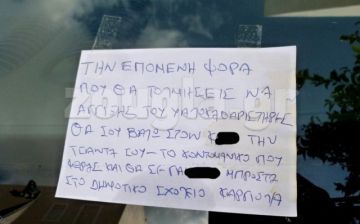 ΤΗΝ ΕΠΟΜΕΝΗ ΦΟΡΑ
ΠΟΥ ΘΑ ΤΟΛΜΗΣΕΙΣ ΝΑ
ΑΓΓΙΞΗΣ ΤΟΥ ΥΑΛΟΚΑΘΑΡΙΣΤΗΡΗΣ
ΘΑ ΣΟΥ ΒΑΛΩ ΣΤΟΝ Κ ΤΗΝ
ΤΣΑΝΤΑ ΣΟΥ-ΤΟ ΚΟΝΤΟΜΑΝΙΚΟ ΠΟΥ
ΦΟΡΑΣ ΚΑΙ ΘΑ ΣΕ ΓΑ ΜΠΡΟΣΤΑ
ΣΤΟ ΔΗΜΟΤΙΚΟ ΣΧΟΛΕΙΟ